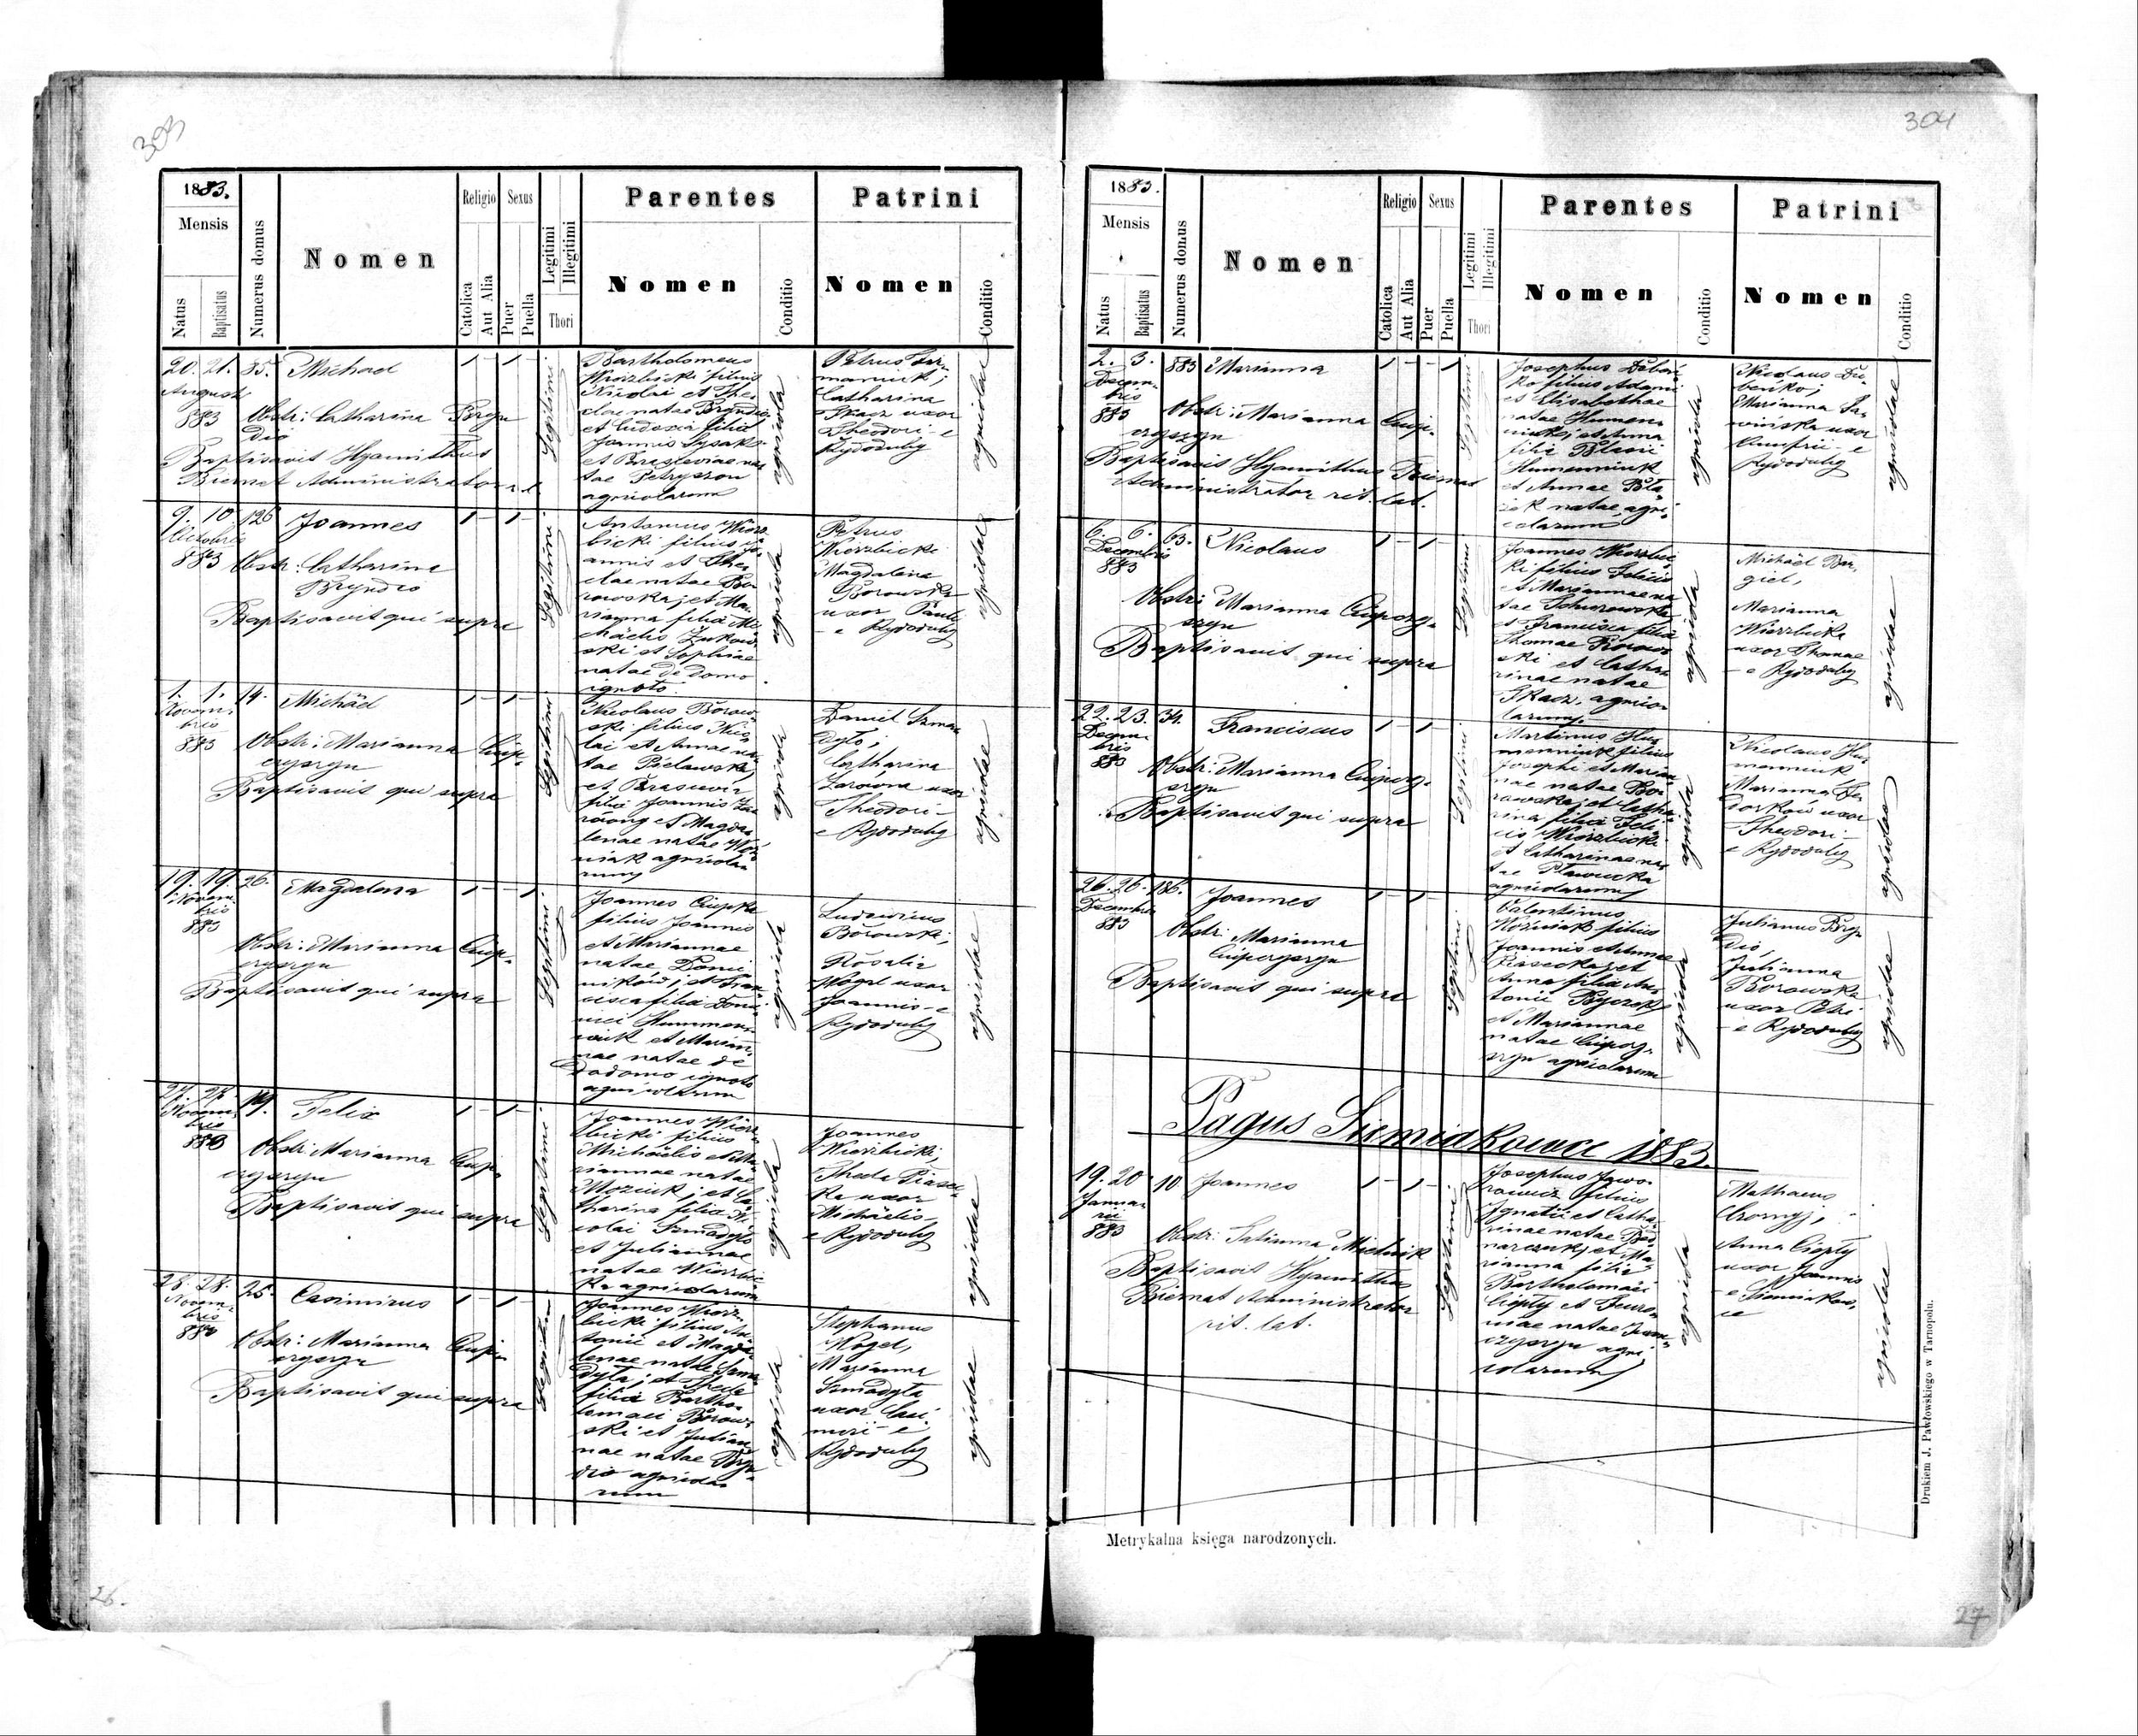 303
1883.
Mensis
Natus
Baptisatus
Numerus domus
Nomen
Religio
Catolica
Aut Alia
Sexus
Puer
Puella
Legitimi
Illegitimi
Thori
Parentes
Nomen
Conditio
Patrini
Nomen
Conditio
20. 21. 35. Michael
Augusti
883
Obstr: Catharina Bryn
dio
Baptisavit Hyacinthus
Biernat Administrator r. l.
Legitimi
Bartholomeus
Wierzbicki filius
Nicolai et The
clae natae Bryndio
et Eudoxia filia
Joannis Lysak
et Parasceviae na
tae Petryszon
agricolarum
agricola
Petrus Szy
maniuk;
Catharina
Tkacz uxor
Theodori e
Rydoduby
agricolae
9. 10 126 Joannes
Octobris
883
Obstr: Catharina
Bryndio
Baptisavit qui supra
Legitimi
Antonius Wierz
bicki filius Jo
annis et The
clae natae Bo
rowska; et Ma
rianna filia Mi
chaelis Żukow
ski et Sophiae
natae de domo
ignoto
agricola
Petrus
Wierzbicki
Magdalena
Borowska
uxor Pauli
- e Rydoduby
agricolae
1. 1. 14. Michäel
Novem
bris
883
Obstr: Marianna Ciup-
ergzryn
Baptisavit qui supra
Legitimi
Nicolaus Borow
ski filius Nico
lai et Annae na
tae Pielawska,
et Parascevia
filia Joannis
et Magda
lenae natae Woź
niak agricola
rum
agricola
Daniel Szma
dyło;
Catharina
uxor
Theodori -
e Rydoduby
agricolae
19. 19. 26. Magdalena
Novem
bris
883
Obstr: Marianna Ciup-
ergzryn
Baptisavit qui supra
Legitimi
Joannes Ciupka
filius Joannis
et Mariannae
natae Domi
ników; et Fran
cisca filia Domi
nici Hummen
niuk et Marian
nae natae de
domo ignoto
agricolarum
agricola
Ludovicus
Borowski;
Rosalia
Kogel uxor
Joannis - e
Rydoduby
agricolae
27. 27. 19. Felix
Novem
bris
883
Obstr: Marianna Ciup-
ergzryn
Baptisavit qui supra
Legitimi
Joannes Wierz
bicki filius
Michaelis et Ma
riannae natae
Woźniuk; et Ca
tharina filia Ni
colai Szmadyło
et Juliannae
natae Wierzbic
ka agricolarum
agricola
Joannes
Wierzbicki;
Thecla Piasec
ka uxor
Michaelis -
e Rydoduby
agricolae
28. 28. 25. Casimirus
Novem
bris
883
Obstr: Marianna Ciup-
ergzryn
Baptisavit qui supra
Legitimi
Joannes Wierz
bicki filius An
tonii et Magda
lenae natae Szma
dyła; et Thecla
filia Bartho
lomaei Borow
ski et Julian
nae natae Bryn
dio agricola
rum
agricola
Stephanus
Kogel,
Marianna
Szmadyła
uxor Casi
miri - e
Rydoduby
agricolae
26.
304
1883.
Mensis
Natus
Baptisatus
Numerus domus
Nomen
Religio
Catolica
Aut Alia
Sexus
Puer
Puella
Legitimi
Illegitimi
Thori
Parentes
Nomen
Conditio
Patrini
Nomen
Conditio
2. 3. Marianna
Decem
bris
883
Obstr: Marianna Ciup-
ergszyn
Baptisavit Hyacinthus Biernat
Administrator rit. lat.
Legitimi
Josephus Duben
ko filius Adami
et Elisabethae
natae Humen
niuk; et Anna
filia Blasii
Humenniuk
et Annae
natae agri
colarum
agricola
Nicolaus Du
benko;
Marianna Sa
winska uxor
Onufrii - e
Rydoduby
agricolae
6. 6. 63. Nicolaus
Decembris
883
Obstr: Marianna Ciuperg-
szyn
Baptisavit qui supra
Legitimi
Joannes Wierzbic
ki filius Felicis
et Mariannae na
tae
et Francisca filia
Thomae Borow
ski et Catha
rinae natae
Tkacz, agrico
larum
agricola
Michäel Bar
giel,
Marianna
Wierzbicka
uxor Thomae
- e Rydoduby
agricolae
22. 23. 34. Franciscus
Decem
bris
883
Obstr: Marianna Ciuperg-
szyn
Baptisavit qui supra
Legitimi
Martinus Hu
menniuk filius
Josephi et Marian
nae natae Bo
rowska; et Catha
rina filia Feli
cis Wierzbicki
et Catharinae na
tae
agricolarum
agricola
Nicolaus Hu
menniuk
Marianna
uxor
Theodori -
e Rydoduby
agricolae
26. 26. 186. Joannes
Decembris
883
Obstr: Marianna
Ciupergzyn
Baptisavit qui supra
Legitimi
Valentinus
Woźniak filius
Joannis et Annae
Piasecka; et
Anna filia An
tonii
et Mariannae
natae Ciuperg-
szyn agricolarum
agricola
Julianus Bryn
dio,
Julianna
Borowska
uxor Petri
- e Rydoduby
agricolae
Pagus Siemiakowce 1883.
19. 20 10 Joannes
Janua
rii
883
Obstr: Tatianna Mielnik
Baptisavit Hyacinthus
Biernat Administrator
rit. lat.
Legitimi
Josephus Jawo
rowicz filius
Ignatii et Catha
rinae natae Bed
narczuk; et Ma
rianna filia
Bartholomaei
Ciepły et Euro
niae natae
agri
colarum
agricola
Mathaeus
Czornyj;
Anna Ciepły
uxor Joannis
- e Siemiakow
ce
agricolae
Drukiem J. Pawłowskiego w Tarnopolu.
Metrykalna księga narodzonych.
27